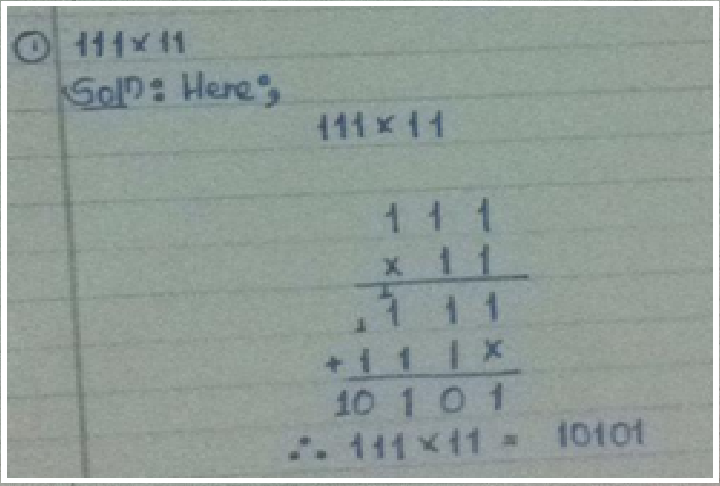 ① 111 × 11
Solⁿ: Here;
111 × 11
1 1 1
× 1 1
1
1 1 1 1
+ 1 1 1 ×
10 1 0 1
∴ 111 × 11 = 10101